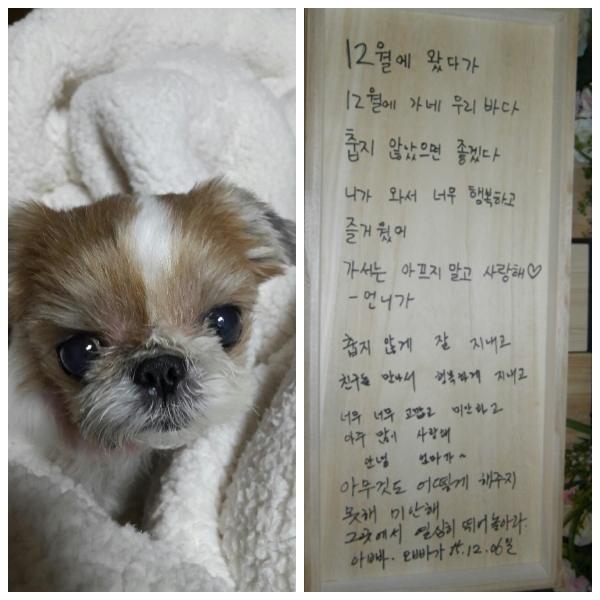 12월에 왔다가
12월에 가네 우리 바다
춥지 않았으면 좋겠다
니가 와서 너무 행복하고
즐거웠어
가서는 아프지말고 사랑해♡
- 언니가
춥지 않게 잘 지내고
친구들 만나서 행복하게 지내고
너무 너무 고맙고 미안하고
아주 많이 사랑해
안녕 엄마가~
아무것도 어떻게 해주지
못해 미안해
그곳에서 열심히 뛰어놀아라.
아빠. 오빠가 15.12.06일